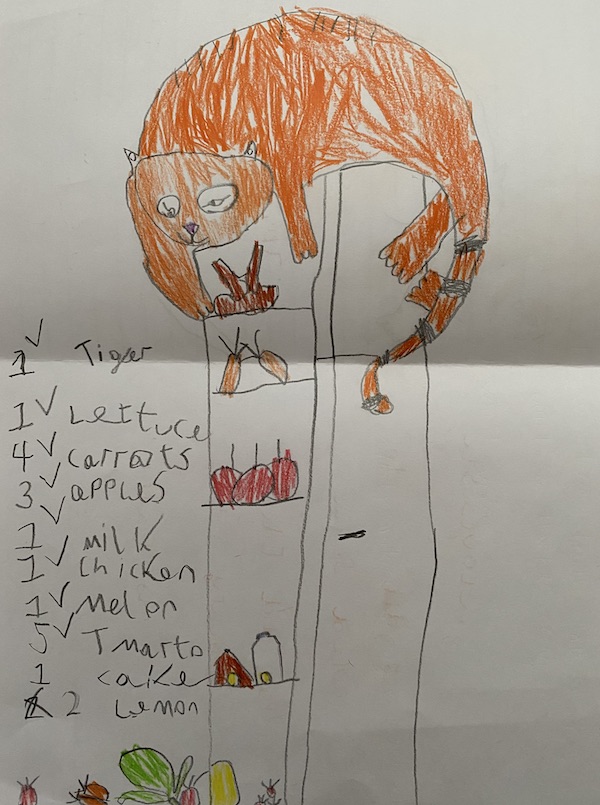 1 ✓ Tiger
1 ✓ Lettuce
4 ✓ carrots
3 ✓ apples
1 ✓ milk
1 ✓ chicken
1 ✓ Melon
5 ✓ Tmarto
1 cake
2 Lemon